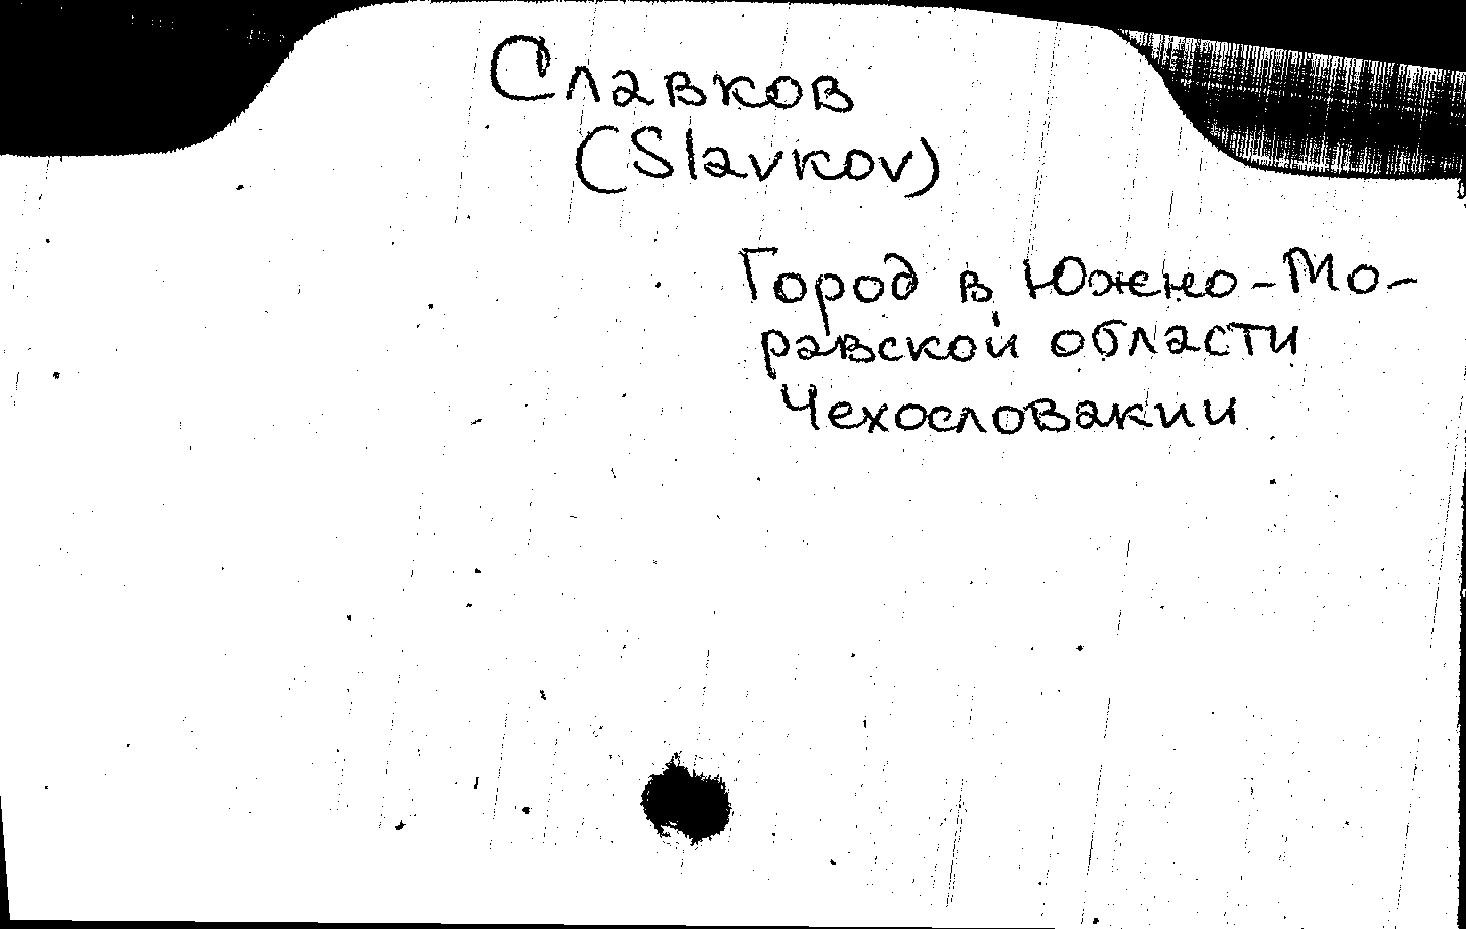 Славков
(Slavkov)
Город в Южно-Мо-
равской области
Чехословакии